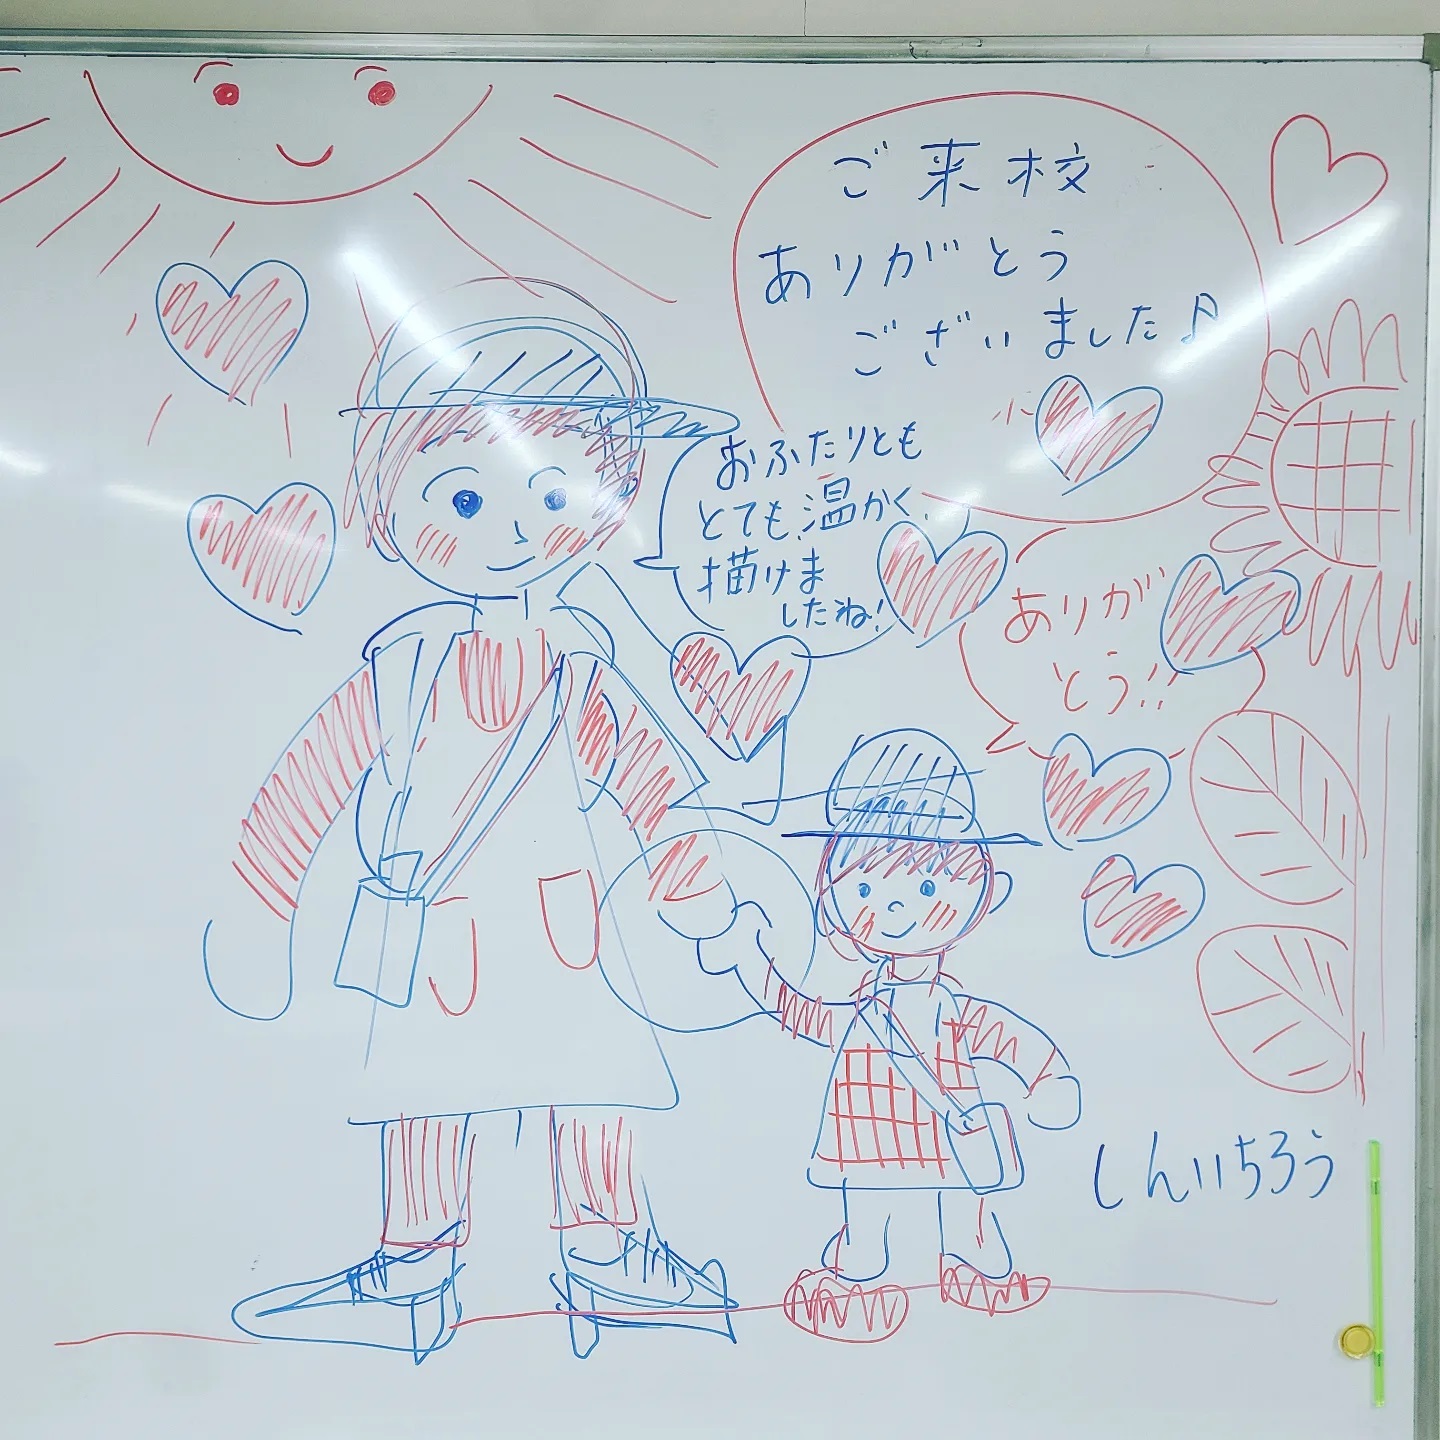 ご来校
ありがとう
ございました♪
おふたりとも
とても温かく、
描けま
したね!
ありが
とう!!
しんいちろう